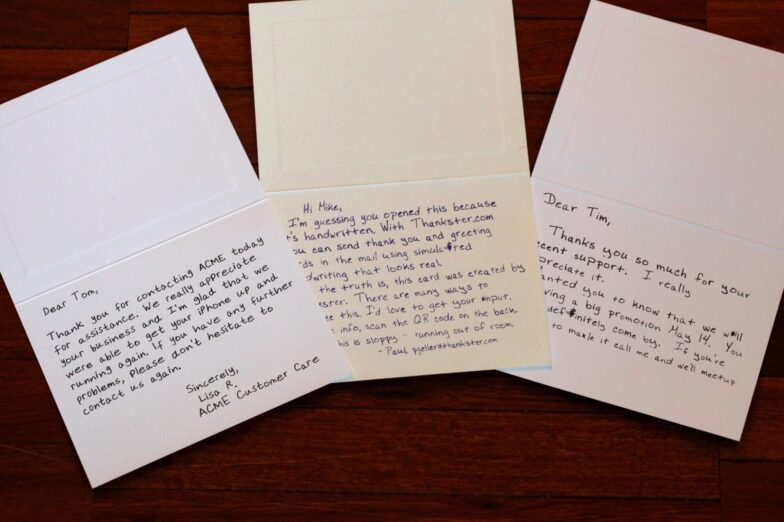 Dear Tom,
Thank you for contacting ACME today
for assistance. We really appreciate
your business and I'm glad that we
were able to get your iphone up and
running again. If you have any further
problems, please don't hesitate to
contact us again.
Sincerely,
Lisa R.
ACME Customer Care
Hi Mike,
I'm guessing you opened this because
t's handwritten. With Thankster.com
ou can send thank you and greeting
rds in the mail using simulated
dwriting that looks real.
the truth is, this card was created by
ster. There are many ways to
e this. I'd love to get your input.
info, scan the QR code on the back.
his is sloppy - running out of room
- Paul, pgeller@thankster.com
Dear Tim,
Thanks you so much for your
ecent support. I really
preciate it.
anted you to know that we will
ving a big promotion May 14. You
definitely come by. If you're
to make it call me and we'll meetup